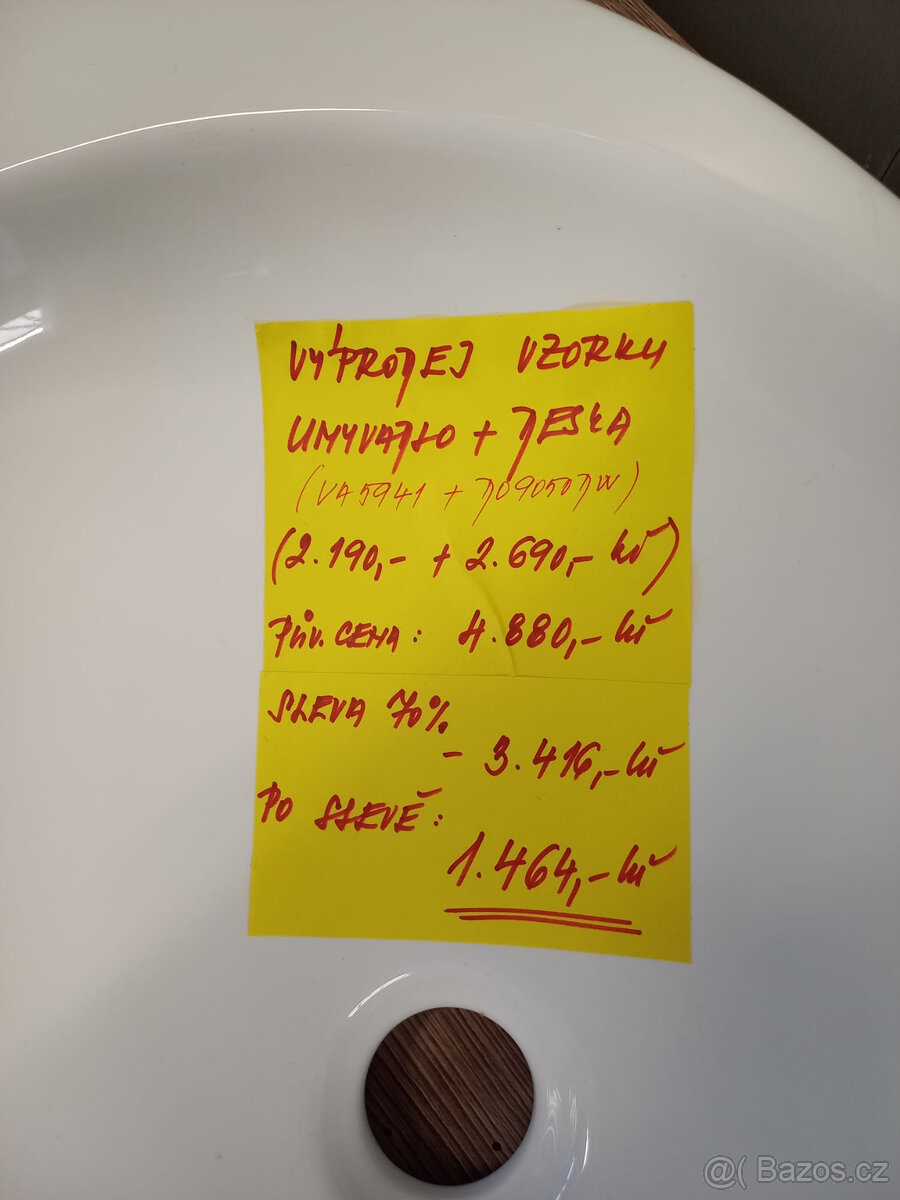 VÝPRODEJ VZORKU
UMYVADLO + DESKA
(VA5941 + DO9050DW)
(2.190,- + 2.690,- kč)
PŮV. CENA: 4.880,- kč
SLEVA 70%
- 3.416,- kč
PO SLEVĚ:
1.464,- kč
@( Bazos.cz